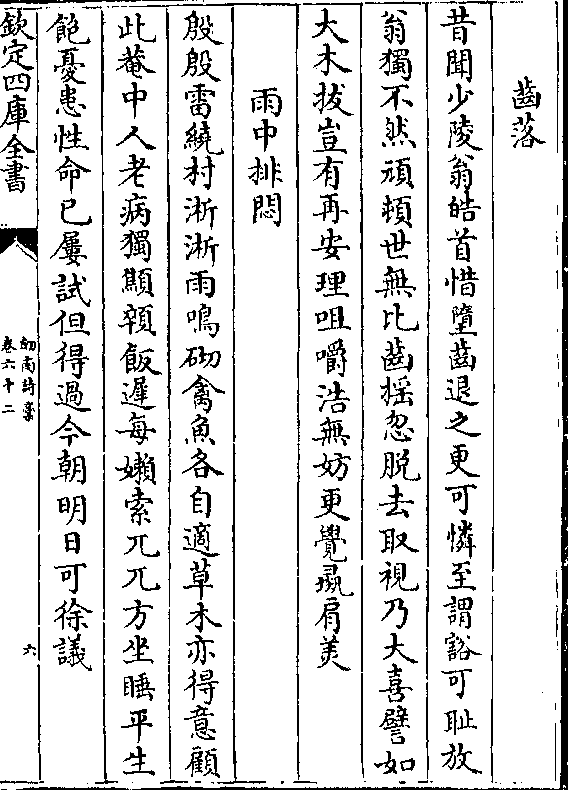 齒落
昔聞少陵翁皓首惜墮齒退之更可憐至謂豁可耻放
翁獨不然頑頰世無比齒揺忽脱去取視乃大喜譬如
大木拔豈有再安理咀嚼浩無妨更覺彘肩羙
雨中排悶
殷殷雷繞村淅淅雨鳴砌禽魚各自適草木亦得意顧
此菴中人老病獨顯領飯遲每嬾索兀兀方坐睡平生
飽憂患性命已屢試但得過今朝明日可徐議
欽定四庫全書
劒南詩藁
卷六十二
六